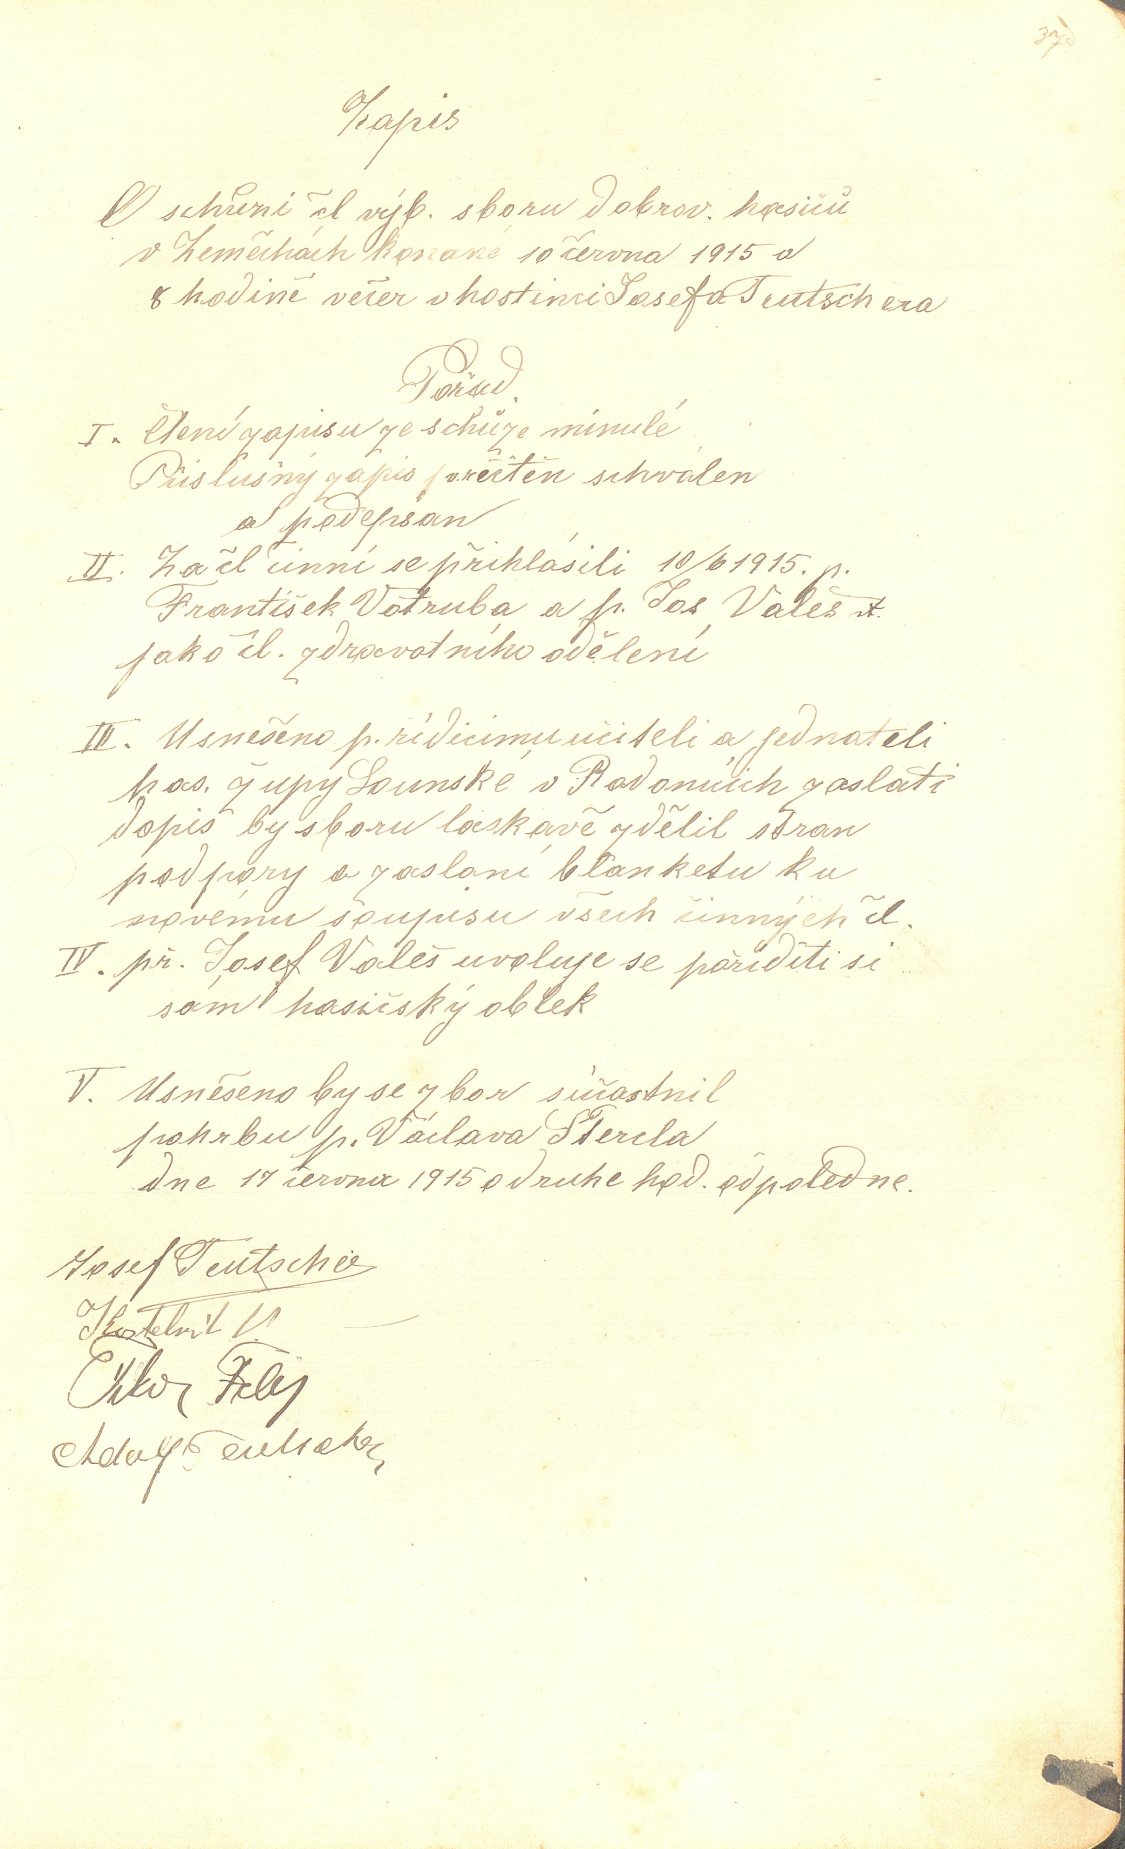 37
Zapis
O schůzi čl výb. sboru dobrov. hasičů
v Zeměchách konané 10 června 1915 o
8 hodině večer v hostinci Josefa Teutschera
Pořad.
I. Čtení zapisu ze schůze minulé
Příslušný zápis přečten schválen
a podepsan
II. Za čl činní se přihlásili 10/6 1915. p.
František Votruba a p. Jos. Valeš st.
jako čl. zdravotního oďělení
III. Usnešeno p. řidicimu učiteli a jednateli
has. župy Lounské v Radonicich zaslati
dopis by sboru laskavě zdělil stran
podpory a zaslani blanketu ku
novému soupisu všech činných čl.
IV. př. Josef Valeš uvoluje se pořiditi si
sám hasičský oblek
V. Usnešeno by se zbor súčastnil
pohrbu p. Václava Štercla
dne 17 června 1915 o druhe hod. odpoledne.
Josef Teutscher
Kostelník V.
Filip
Adolf Teutscher